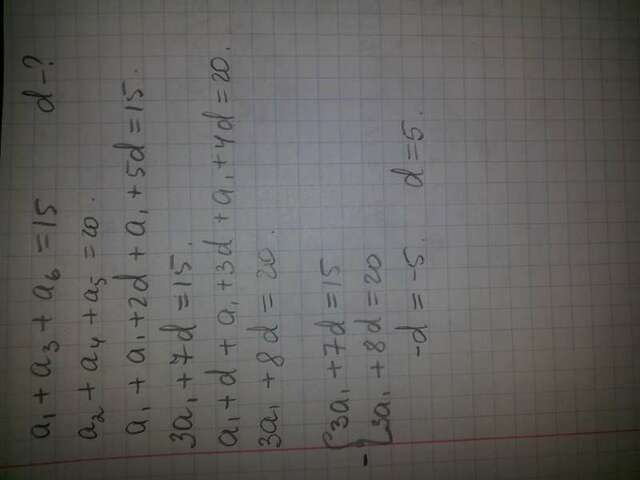 a₁ + a₃ + a₆ = 15 d - ?
a₂ + a₄ + a₅ = 20.
a₁ + a₁ + 2d + a₁ + 5d = 15.
3a₁ + 7d = 15.
a₁ + d + a₁ + 3d + a₁ + 4d = 20.
3a₁ + 8d = 20.
- { 3a₁ + 7d = 15
3a₁ + 8d = 20
-d = -5. d = 5.